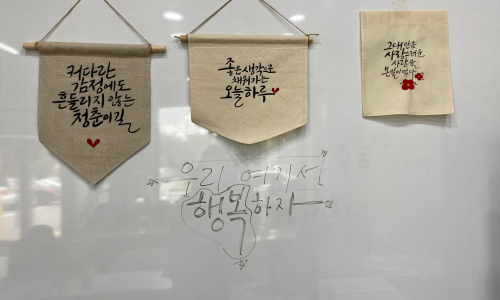 커다란
감정에도
흔들리지 않는
청춘이길
좋은 생각으로
채워가는
오늘 하루
그대만큼
사랑스러운
사람을
본 일이 없다
우리 여기서
행복하자